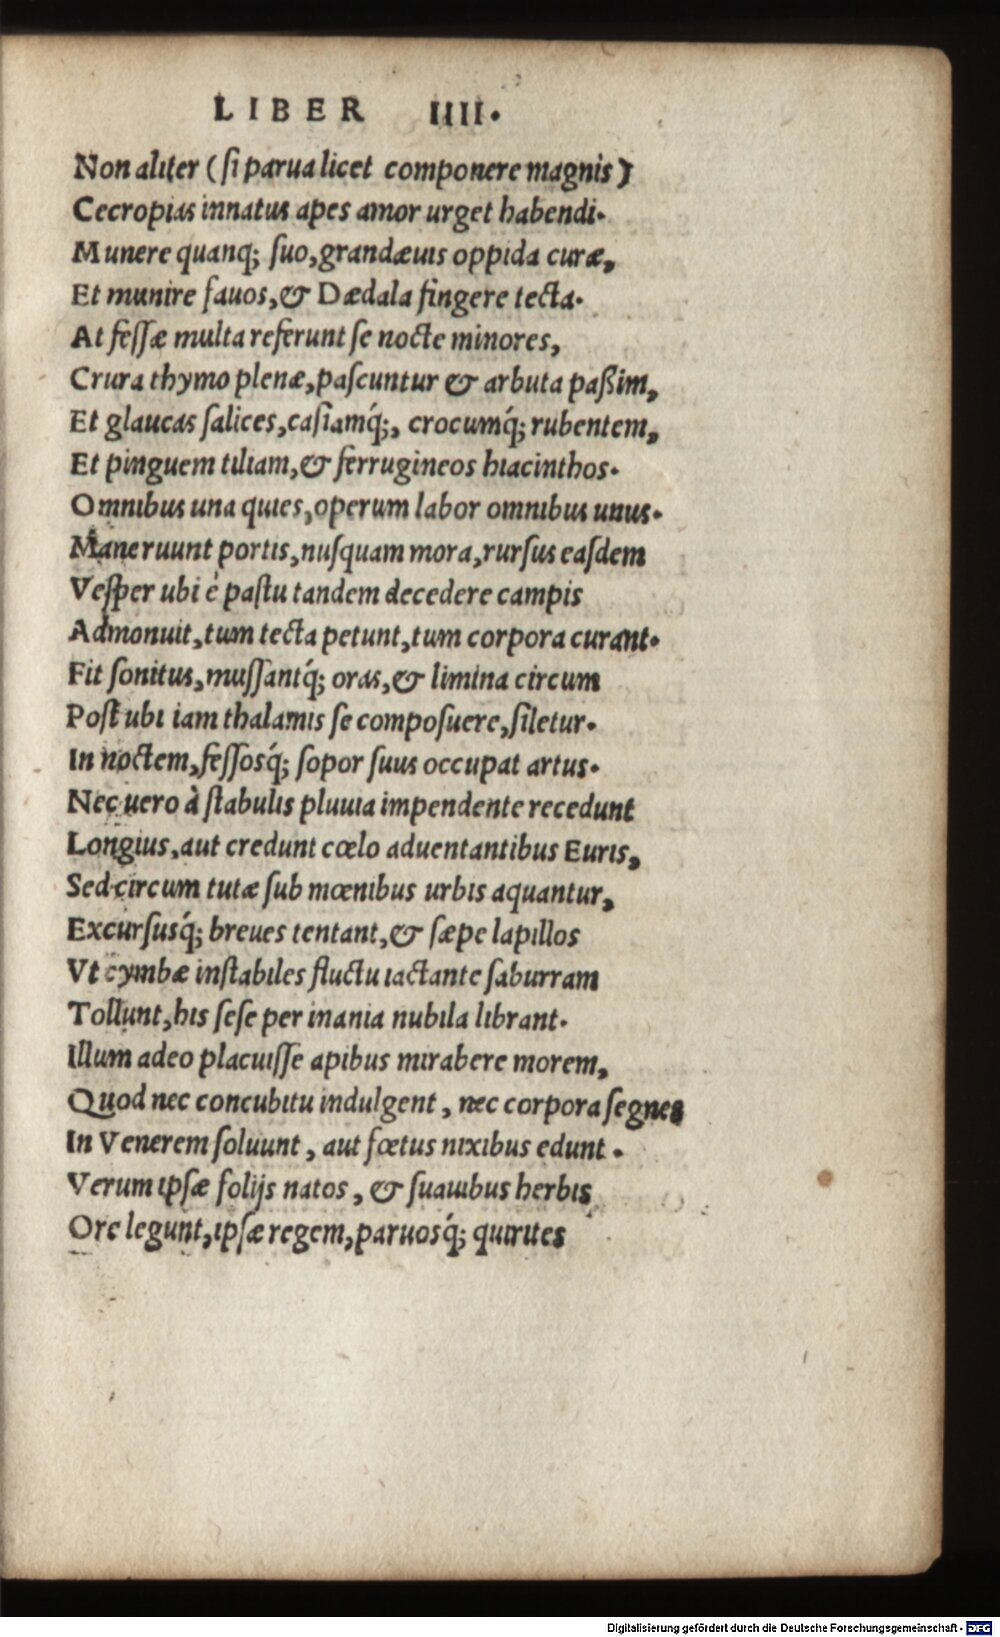 LIBER IIII.
Non aliter (ſi parua licet componere magnis)
Cecropias innatus apes amor urget habendi.
Munere quanq; ſuo, grandæuis oppida curæ,
Et munire fauos, & Dædala fingere tecta.
At feſſæ multa referunt ſe nocte minores,
Crura thymo plenæ, paſcuntur & arbuta paßim,
Et glaucas ſalices, caſiamq́;, crocumq́; rubentem,
Et pinguem tiliam, & ferrugineos hiacinthos.
Omnibus una quies, operum labor omnibus unus.
Mane ruunt portis, nuſquam mora, rurſus eaſdem
Veſper ubi è paſtu tandem decedere campis
Admonuit, tum tecta petunt, tum corpora curant.
Fit ſonitus, muſſantq́; oras, & limina circum
Poſt ubi iam thalamis ſe compoſuere, ſiletur.
In noctem, feſſosq́; ſopor ſuus occupat artus.
Nec uero à ſtabulis pluuia impendente recedunt
Longius, aut credunt cœlo aduentantibus Euris,
Sed circum tutæ ſub mœnibus urbis aquantur,
Excurſusq́; breues tentant, & ſæpe lapillos
Vt cymbæ inſtabiles fluctu iactante ſaburram
Tollunt, his ſeſe per inania nubila librant.
Illum adeo placuiſſe apibus mirabere morem,
Quod nec concubitu indulgent, nec corpora ſegnes
In Venerem ſoluunt, aut fœtus nixibus edunt.
Verum ipſæ folijs natos, & ſuauibus herbis
Ore legunt, ipſæ regem, paruosq́; quirites
Digitalisierung gefördert durch die Deutsche Forschungsgemeinschaft - DFG